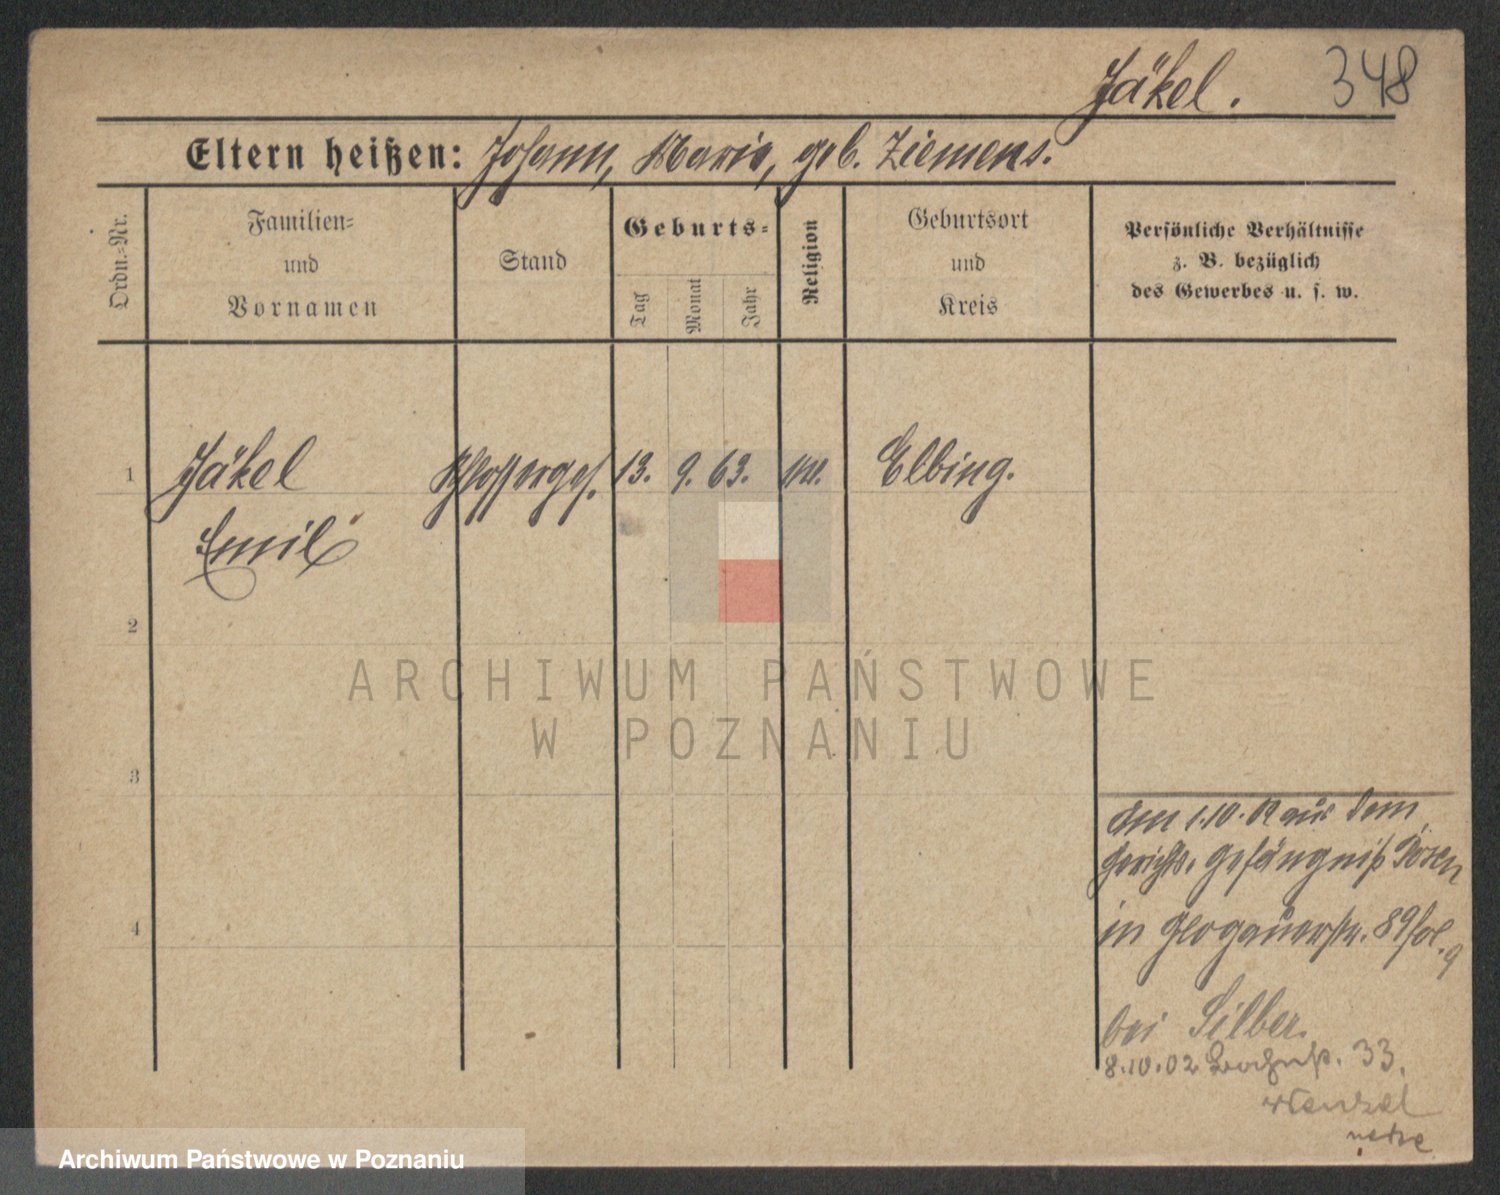 Jäkel. 348
Eltern heißen: Johann, Maria, geb. Ziemens.
Ordn.-Nr.
Familien-
und
Vornamen
Stand
Geburts-
Tag
Monat
Jahr
Religion
Geburtsort
und
Kreis
Persönliche Verhältnisse
z. B. bezüglich
des Gewerbes u. s. w.
1 Jäkel Schlosserges. 13. 9. 63. Elbing.
Emil
2
3
4
1.10. 02 aus dem
Gerichts-Gefängniß Posen
in Glogauerstr. 89
bei Silber.
8.10.02 33.
ARCHIWUM PAŃSTWOWE
W POZNANIU
Archiwum Państwowe w Poznaniu